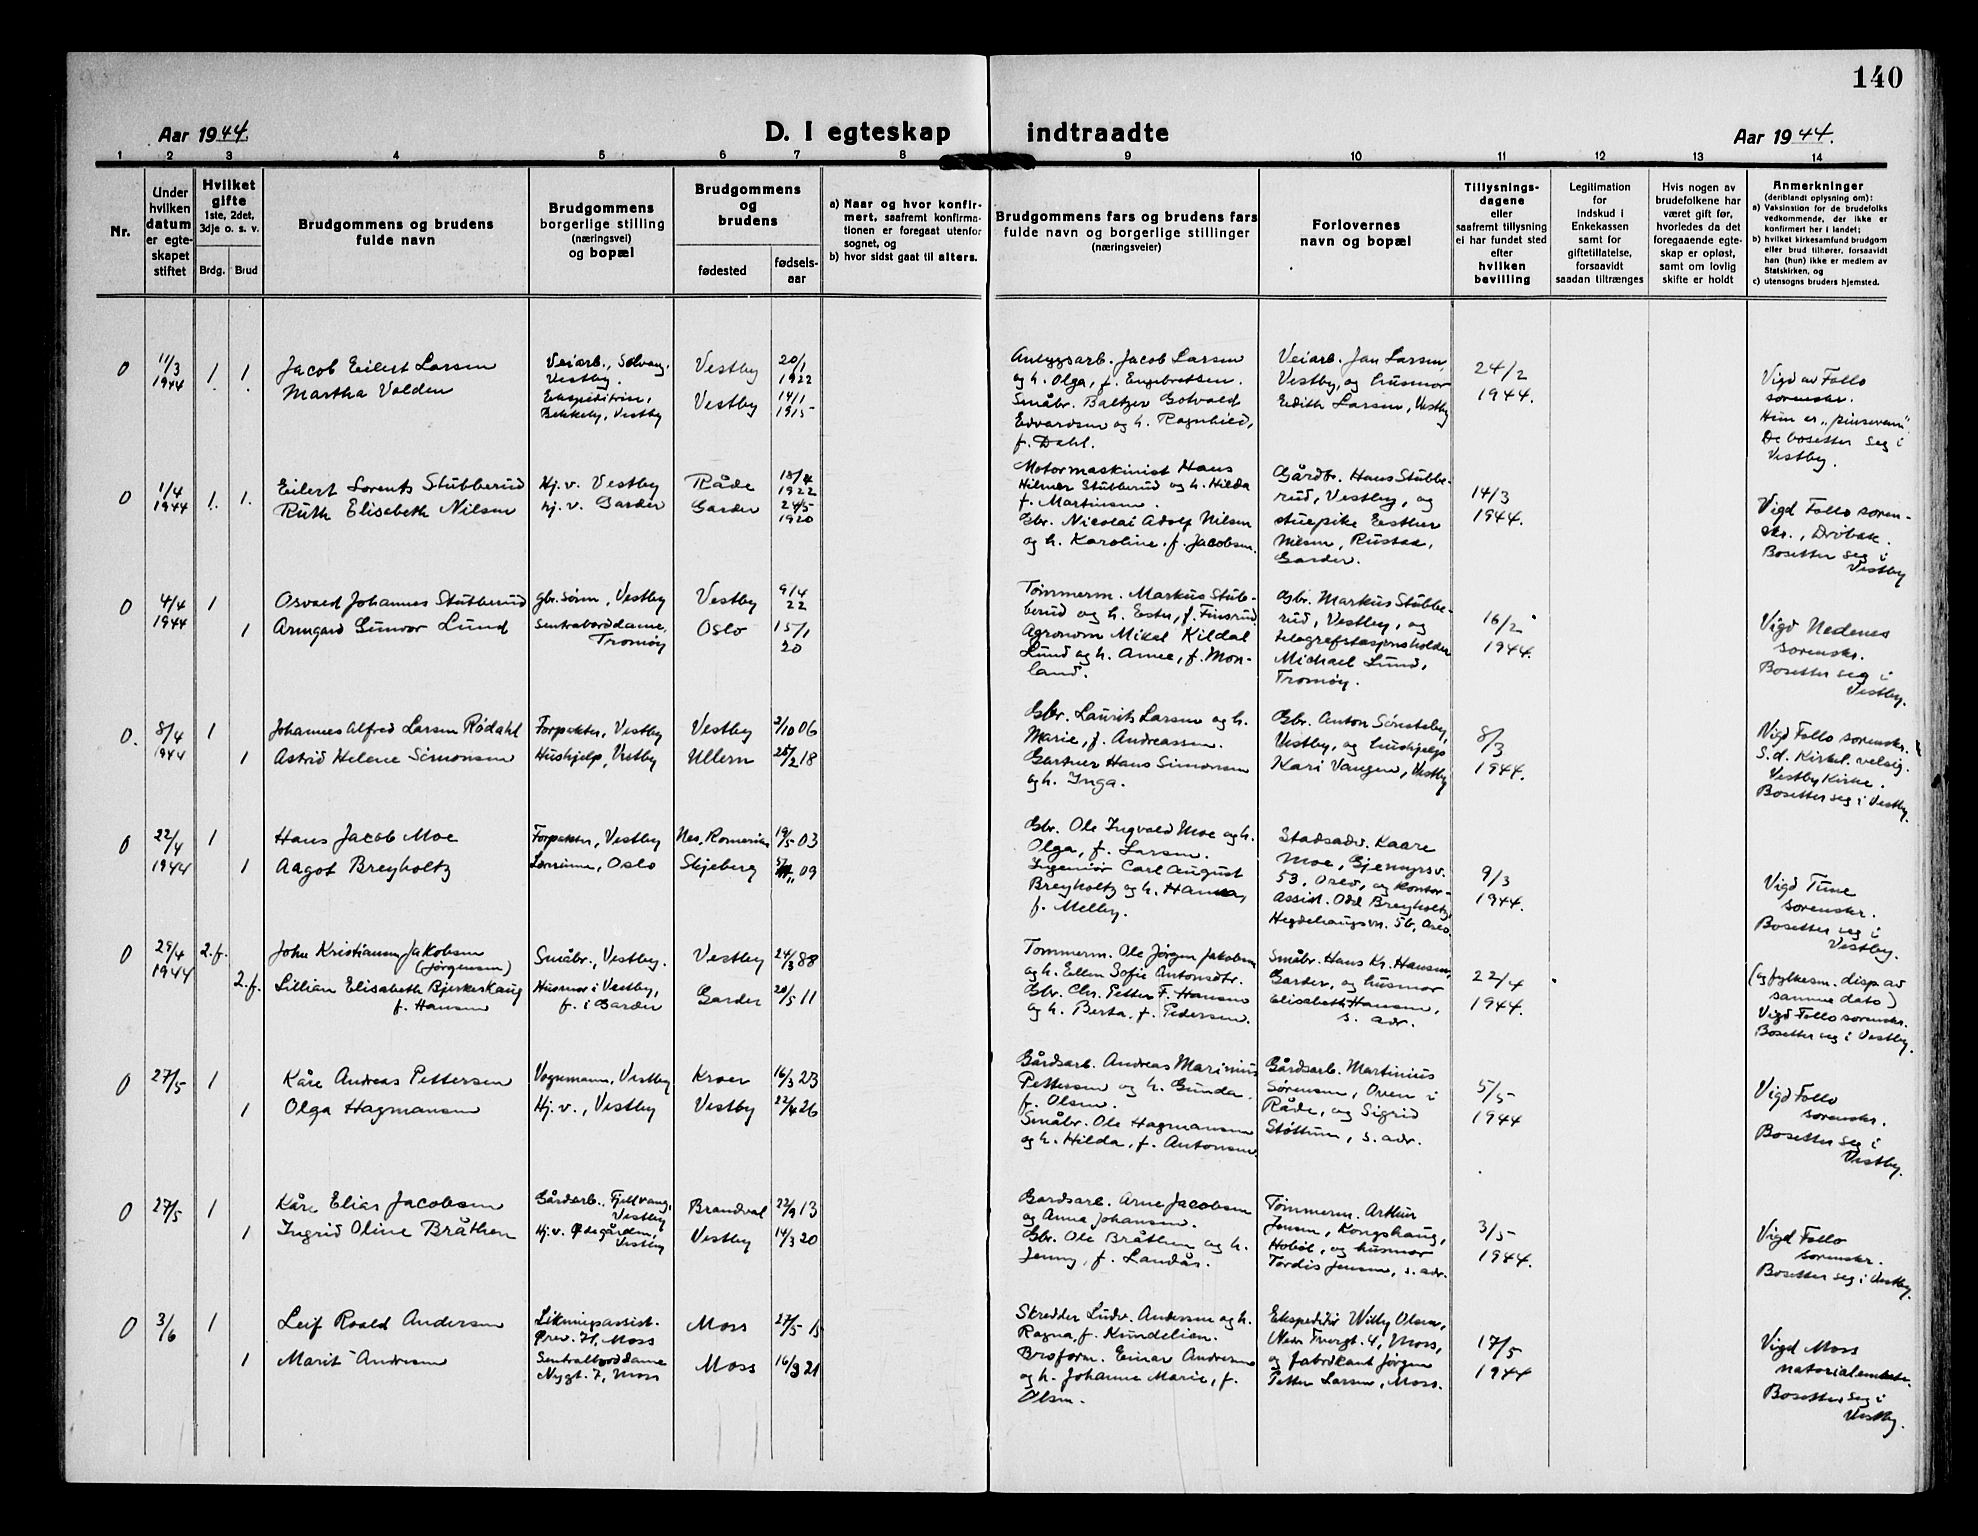 140
Aar 1944.
D. I egteskap indtraadte
Aar 1944.
1 2 3 4 5 6 7 8 9 10 11 12 13 14
Nr.
Under hvilken datum er egteskapet stiftet
Hvilket gifte
1ste, 2det, 3dje o. s. v.
Brdg. Brud
Brudgommens og brudens fulde navn
Brudgommens borgerlige stilling (næringsvei) og bopæl
Brudgommens og brudens
fødested
fødselsaar
a) Naar og hvor konfirmert, saafremt konfirmationen er foregaat utenfor sognet, og
b) hvor sidst gaat til alters.
Brudgommens fars og brudens fars fulde navn og borgerlige stillinger (næringsveier)
Forlovernes navn og bopæl
Tillysningsdagene eller saafremt tillysning ei har fundet sted efter hvilken bevilling
Legitimation for indskud i Enkekassen samt for giftetillatelse, forsaavidt saadan tiltrænges
Hvis nogen av brudefolkene har været gift før, hvorledes da det foregaaende egteskap er opløst, samt om lovlig skifte er holdt
Anmerkninger (deriblandt oplysning om):
a) Vaksination for de brudefolks vedkommende, der ikke er konfirmert her i landet;
b) hvilket kirkesamfund brudgom eller brud tilhører, forsaavidt han (hun) ikke er medlem av Statskirken, og
c) utensogns bruders hjemsted.
0 11/3 1944 1. 1.
Jacob Eilert Larsen
Martha Volden
Veiarb., Solvang, Vestby.
Ekspeditrise, Bekkeby, Vestby
Vestby 20/1 1922
Vestby 14/1 1915
Anleggsarb. Jacob Larsen
og h. Olga, f. Engebretsen.
Småbr. Baltzer Gotvald
Edvardsen og h. Ragnhild,
f. Dahl.
Veiarb. Jan Larsen,
Vestby, og husmor
Edith Larsen, Vestby
24/2 1944.
Vigd av Follo
sorenskr.
Hun er "pinseven"
De bosetter seg i
Vestby.
0 1/4 1944 1. 1.
Eilert Lorents Stubberud
Ruth Elisabeth Nilsen
Hj. v. Vestby
Hj. v. Garder
Råde 18/4 1922
Garder 24/5 1920
Motormaskinist Hans
Hilmer Stubberud og h. Hilda
f. Martinsen.
Gbr. Nicolai Adolf Nilsen
og h. Karoline, f. Jacobsen.
Gårdbr. Hans Stubberud, Vestby, og
stuepike Esther
Nilsen, Rustad,
Garder.
14/3 1944.
Vigd Follo sorenskr., Drøbak.
Bosetter seg i
Vestby
0 4/4 1944 1 1
Osvald Johannes Stubberud
Armgard Gunvor Lund
gbr. sønn, Vestby
Sentralborddame, Tromøy
Vestby 9/4 22
Oslo 15/1 20
Tømmerm. Markus Stubberud og h. Ester, f. Finsrud
Agronom Mikal Kildal
Lund og h. Amee, f. Monland.
Gbr. Markus Stubberud, Vestby, og
telegrafstasjonsholder
Michael Lund,
Tromøy.
16/2 1944.
Vigd Nedenes
sorenskr.
Bosetter seg i
Vestby.
0. 8/4 1944 1 1
Johannes Alfred Larsen Rødahl
Astrid Helene Simonsen
Forpakter, Vestby
Hushjelp, Vestby
Vestby 3/10 06
Ullern 25/2 18
Gbr. Laurits Larsen og h.
Marie, f. Andreassen.
Gartner Hans Simonsen
og h. Inga.
Gbr. Anton Sørsteby,
Vestby, og hushjelp
Kari Vangen, Vestby
8/3 1944.
Vigd Follo sorenskr.
S.d. Kirkel. velsig.
Vestby Kirke.
Bosetter seg i Vestby.
0 22/4 1944 1 1
Hans Jacob Moe
Aagot Breyholtz
Forpakter, Vestby
Lærerinne, Oslo
Nes, Romerike 19/5 03
Skjeberg 09
Gbr. Ole Ingvald Moe og h.
Olga, f. Larsen.
Ingeniør Carl August
Breyholtz og h. Hanna,
f. Melby.
Stadsadv. Kaare
Moe, Gjennyrsv.
53, Oslo, og kontorassist. Odd Breyholtz
Hegdehaugsvn. 5b, Oslo.
9/3 1944.
Vigd Tune
sorenskr.
Bosetter seg i
Vestby.
0 29/4 1944 2. f. 2. f.
John Kristiansen Jakobsen
(Jørgensen)
Lillian Elisabeth Bjerkeskaug
f. Hansen
Småbr., Vestby.
Husmor i Vestby,
f. i Garder
Vestby 24/3 88
Garder 20/5 11
Tømmerm. Ole Jørgen Jakobsen
og h. Ellen Sofie Antonsdtr.
Gbr. Chr. Petter F. Hansen
og h. Berta, f. Pedersen.
Småbr. Hans Kr. Hansen,
Garder, og husmor
Elisabeth Hansen,
s. adr.
22/4 1944.
(og fylkesm. disp. av
samme dato)
Vigd Follo sorenskr.
Bosetter seg i Vestby.
0 27/5 1 1
Kåre Andreas Pettersen
Olga Hagmansen
Vognmann, Vestby
Hj. v., Vestby
Kroer 16/3 23
Vestby 22/4 26
Gårdsarb. Andreas Marinius
Pettersen og h. Gunda,
f. Olsen.
Småbr. Ole Hagmansen
og h. Hilda, f. Antonsen.
Gårdsarb. Martinius
Sørensen, Oven i
Råde, og Sigrid
Støttum, s. adr.
5/5 1944
Vigd Follo
sorenskr.
Bosetter seg i
Vestby.
0 27/5 1 1
Kåre Elias Jacobsen
Ingrid Oline Bråthen
Gårdsarb., Fjellvang, Vestby
Hj. v. Ødegården, Vestby
Brandval 22/9 13
Vestby 14/3 20
Gardsarb. Arne Jacobsen
og Anna Johansen.
Gbr. Ole Bråthen og h.
Jenny, f. Landås.
Tømmerm. Arthur
Jensen, Kongshaug,
Hobøl, og husmor
Tordis Jensen, s. adr.
3/5 1944.
Vigd Follo
sorenskr.
Bosetter seg i Vestby.
0 3/6 1 1
Leif Roald Andersen
Marit Andresen
Likningsassist.
Prev. 71, Moss
Sentralborddame
Nygt. 7, Moss
Moss 27/5 15
Moss 16/3 21
Skredder Ludv. Andersen og h.
Ragna, f. Kundelien.
Broform. Einar Andresen
og h. Johanne Marie, f.
Olsen.
Ekspeditør Willy Olsen,
Nedr Tvergt. 4, Moss,
og fabrikant Jørgen
Petter Larsen, Moss.
17/5 1944
Vigd Moss
notorialembete.
Bosetter seg i
Vestby.